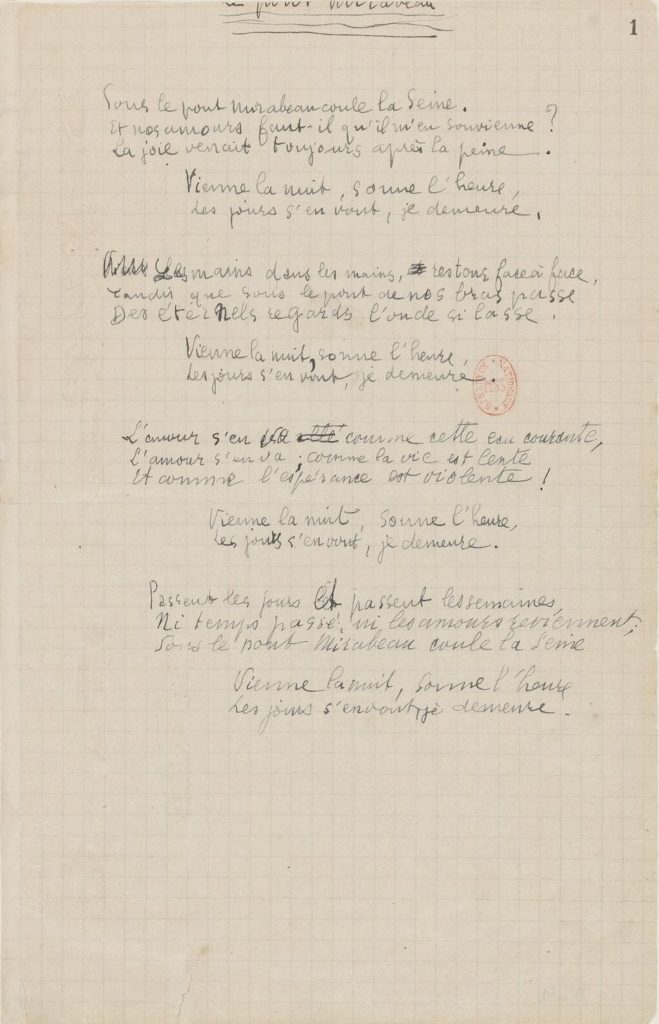 Le pont Mirabeau
1
Sous le pont Mirabeau coule la Seine.
Et nos amours faut-il qu'il m'en souvienne ?
La joie venait toujours après la peine.
Vienne la nuit, sonne l'heure,
Les jours s'en vont, je demeure.
Les mains dans les mains, restons face à face,
tandis que sous le pont de nos bras passe
Des éternels regards l'onde si lasse.
Vienne la nuit, sonne l'heure,
Les jours s'en vont, je demeure.
L'amour s'en va comme cette eau courante,
L'amour s'en va ; comme la vie est lente
Et comme l'espérance est violente !
Vienne la nuit, sonne l'heure,
Les jours s'en vont, je demeure.
Passent les jours et passent les semaines,
Ni temps passé, ni les amours reviennent ;
Sous le pont Mirabeau coule la Seine
Vienne la nuit, sonne l'heure
Les jours s'en vont, je demeure.